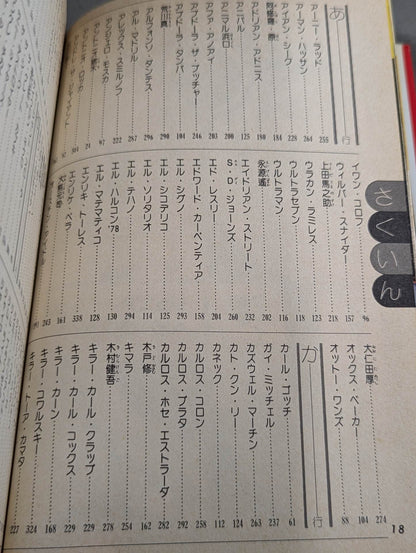 さくいん
あ行
アーニー・ラッド 255
アーマン・ハッサン 264
アイアン・シーク 246
阿修羅・原 184
アドリアン・アドニス 188
アニバル 200
アニマル浜口
アファ・アノアイ 203
アブドーラ・ザ・ブッチャー 246
アブドーラ・タンバ 104
荒川真 290
アルフォンソ・ダンテス 296
アル・マドリル 267
アレックス・スミルノフ 222
アンジェロ・モスカ 97
アントニオ猪木 24
アントニオ・ロッカ
アンドレ・ザ・ジャイアント
イワン・コロフ 96
ウィルバー・スナイダー 157
上田馬之助 218
ウラカン・ラミレス 123
ウルトラセブン 118
ウルトラマン 116
永源遙 202
エイドリアン・ストリート 232
S・D・ジョーンズ 260
エド・レスリー 204
エドワード・カーペンティア 158
エル・シグノ 293
エル・シコデリコ
エル・ソリタリオ 114
エル・テハノ 294
エル・ハルコン'78 130
エル・マテマティコ 128
エンリキ・トーレス 338
エンリケ・ベラ 161
大熊元司 243
大仁田厚 274
オックス・ベーカー 104
オットー・ワンズ 88
か行
カール・ゴッチ 61
ガイ・ミッチェル 237
カズウェル・マーチン 243
カト・クン・リー 124
カネック 112
カルロス・コロン 263
カルロス・プラタ 292
カルロス・ホセ・エストラーダ 282
木戸修 162
キマラ 254
木村健吾 278
キラー・カール・クラップ 229
キラー・カール・コックス 229
キラー・カーン 168
キラー・コワルスキー 324
キラー・トーア・カマタ 227
18